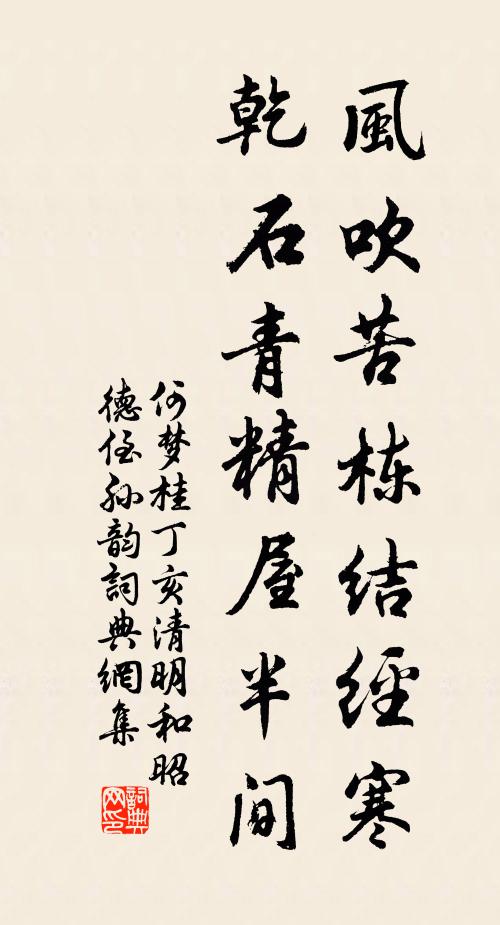 風吹苦栋结經寒
乾石青精屋半间
何梦桂丁亥清明和昭
德侄孙韵詞典網集
詞典
网印